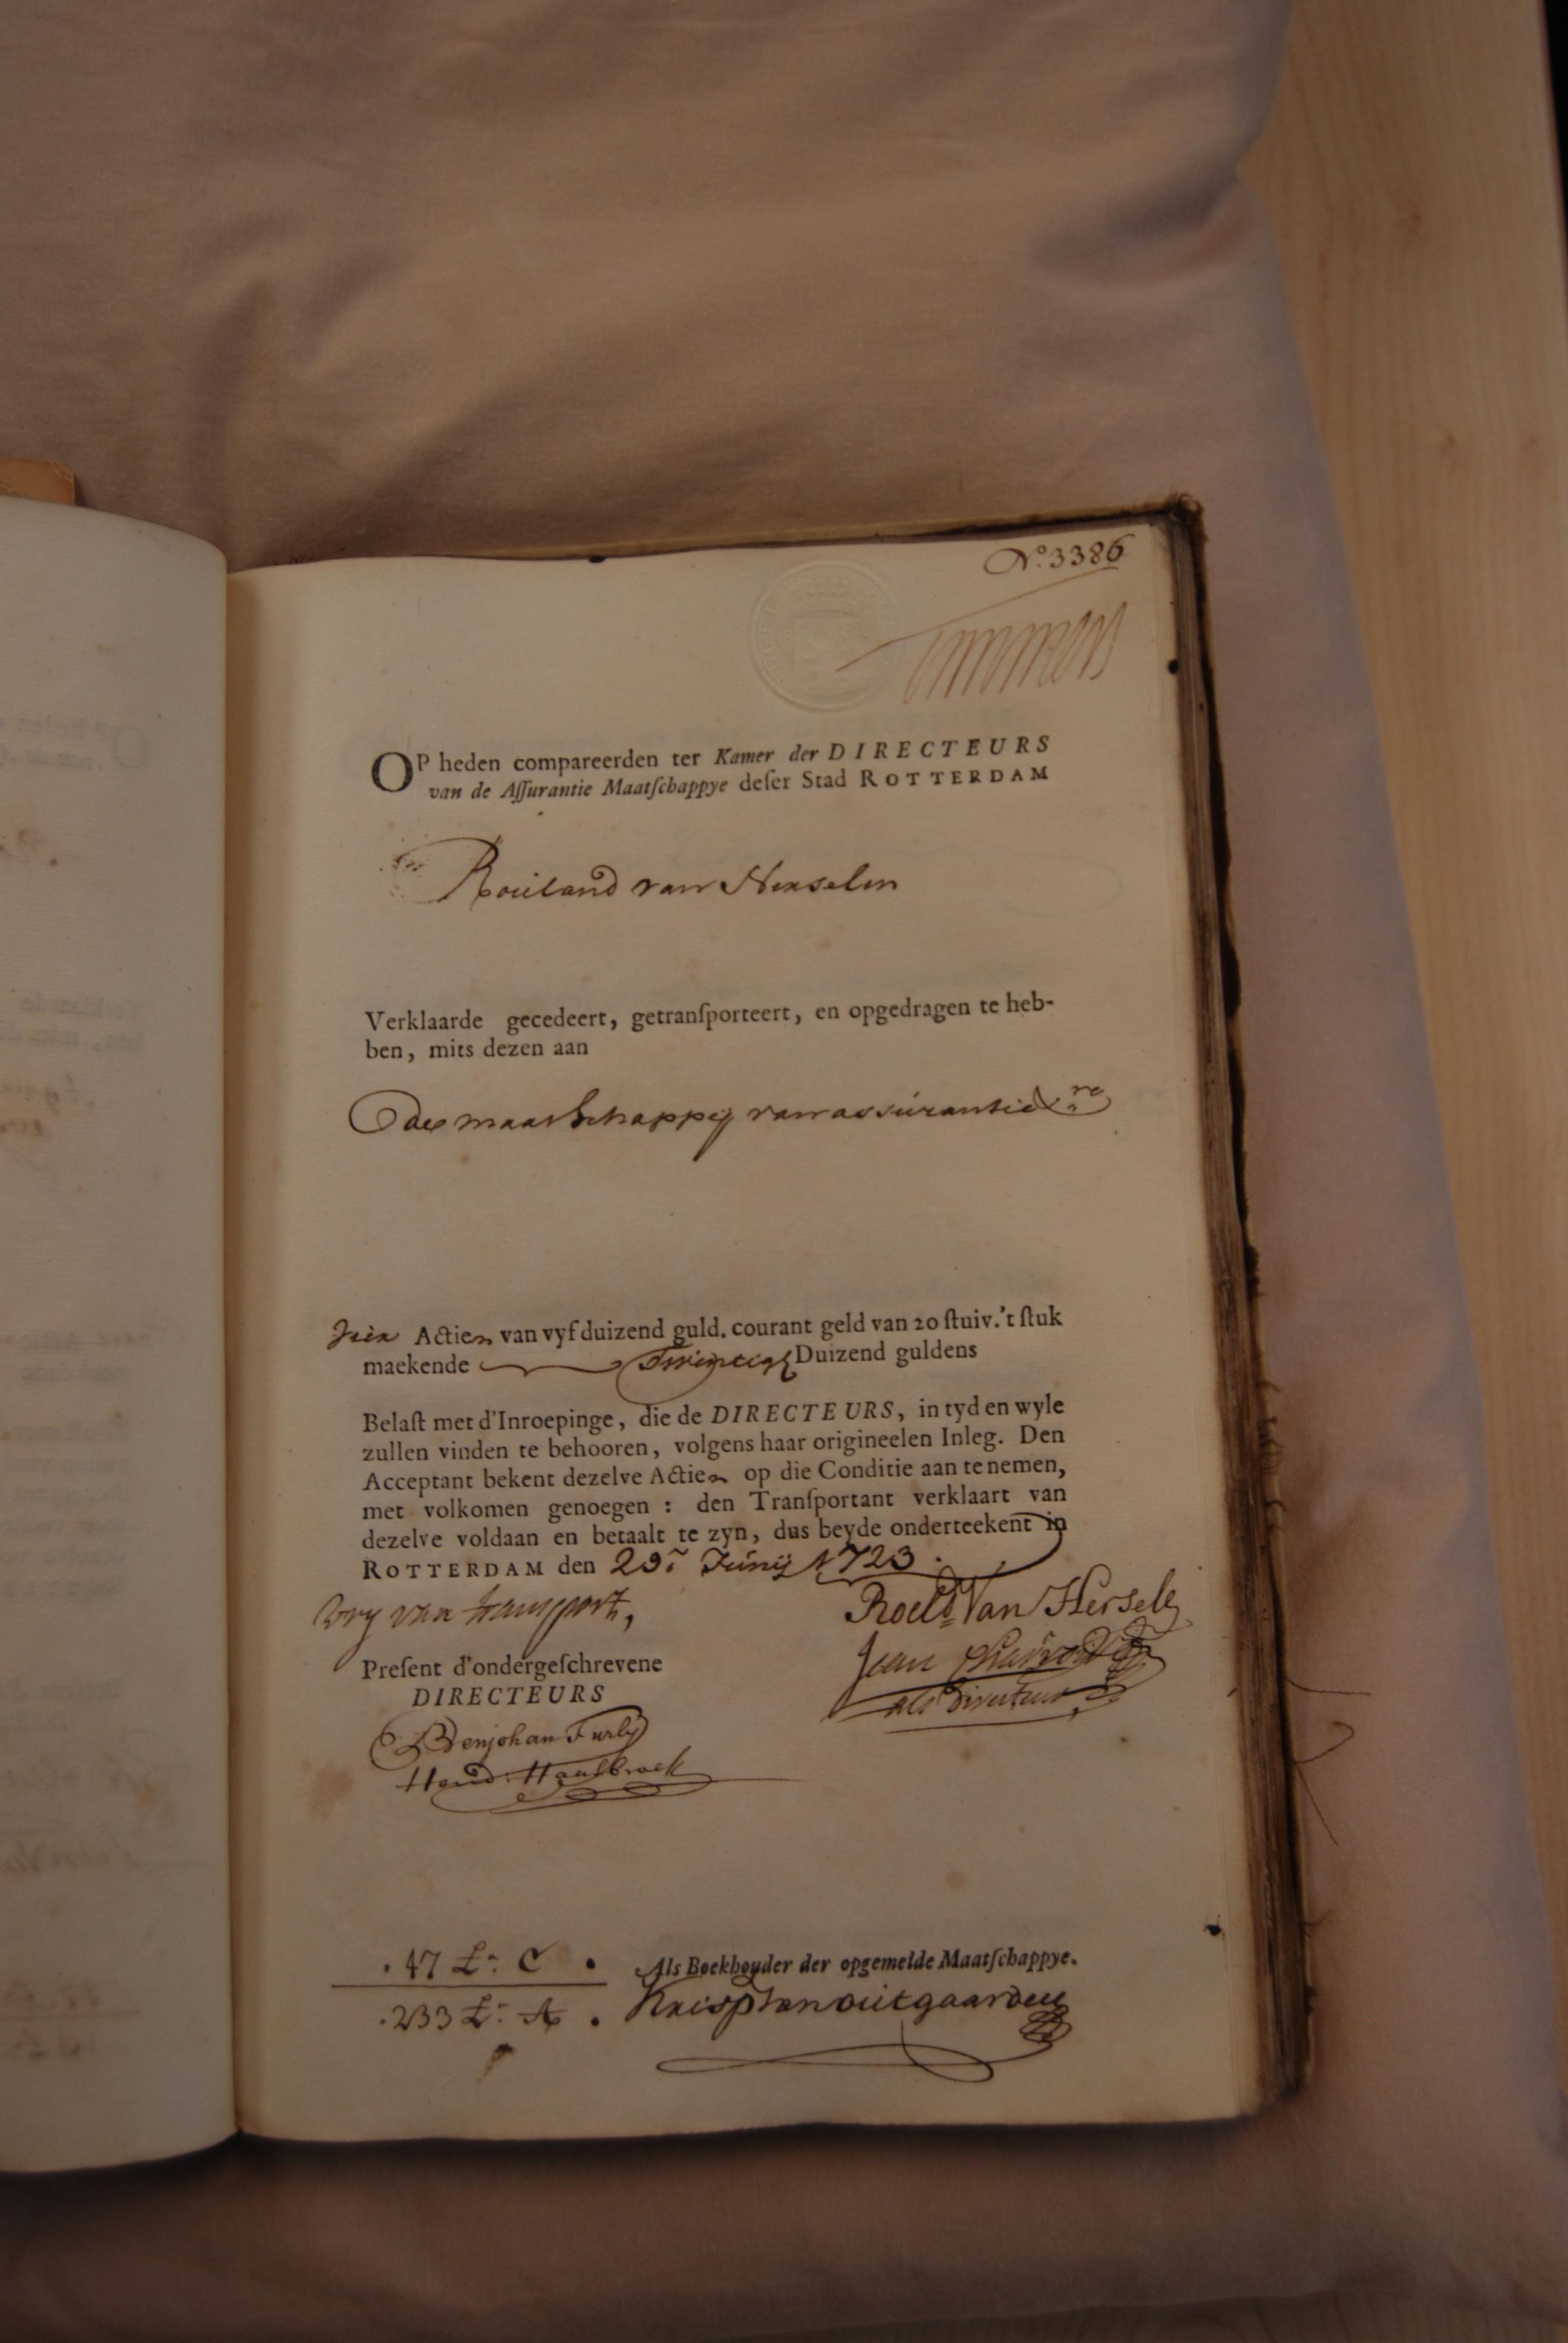 No. 3386
OP heden compareerden ter Kamer der DIRECTEURS
van de Aſſurantie Maatſchappye deſer Stad ROTTERDAM
Roeland van Herselen
Verklaarde gecedeert, getranſporteert, en opgedragen te heb-
ben, mits dezen aan
de maatschappij van assurantie &ra
Vier Actien van vyf duizend guld. courant geld van 20 ſtuiv. 't ſtuk
maekende Twintig Duizend guldens
Belaſt met d'Inroepinge, die de DIRECTEURS, in tyd en wyle
zullen vinden te behooren, volgens haar origineelen Inleg. Den
Acceptant bekent dezelve Actien op die Conditie aan te nemen,
met volkomen genoegen : den Tranſportant verklaart van
dezelve voldaan en betaalt te zyn, dus beyde onderteekent in
ROTTERDAM den 29: Junij 1723.
vry van transport,
Roeld Van Hersele
Preſent d'ondergeſchrevene
Jean
DIRECTEURS
als Directeur
Benjohan Furly
Hend: Haselbroek
47 Lr C
Als Boekhouder der opgemelde Maatſchappye.
233 Lr A
Krisp van outgaarden